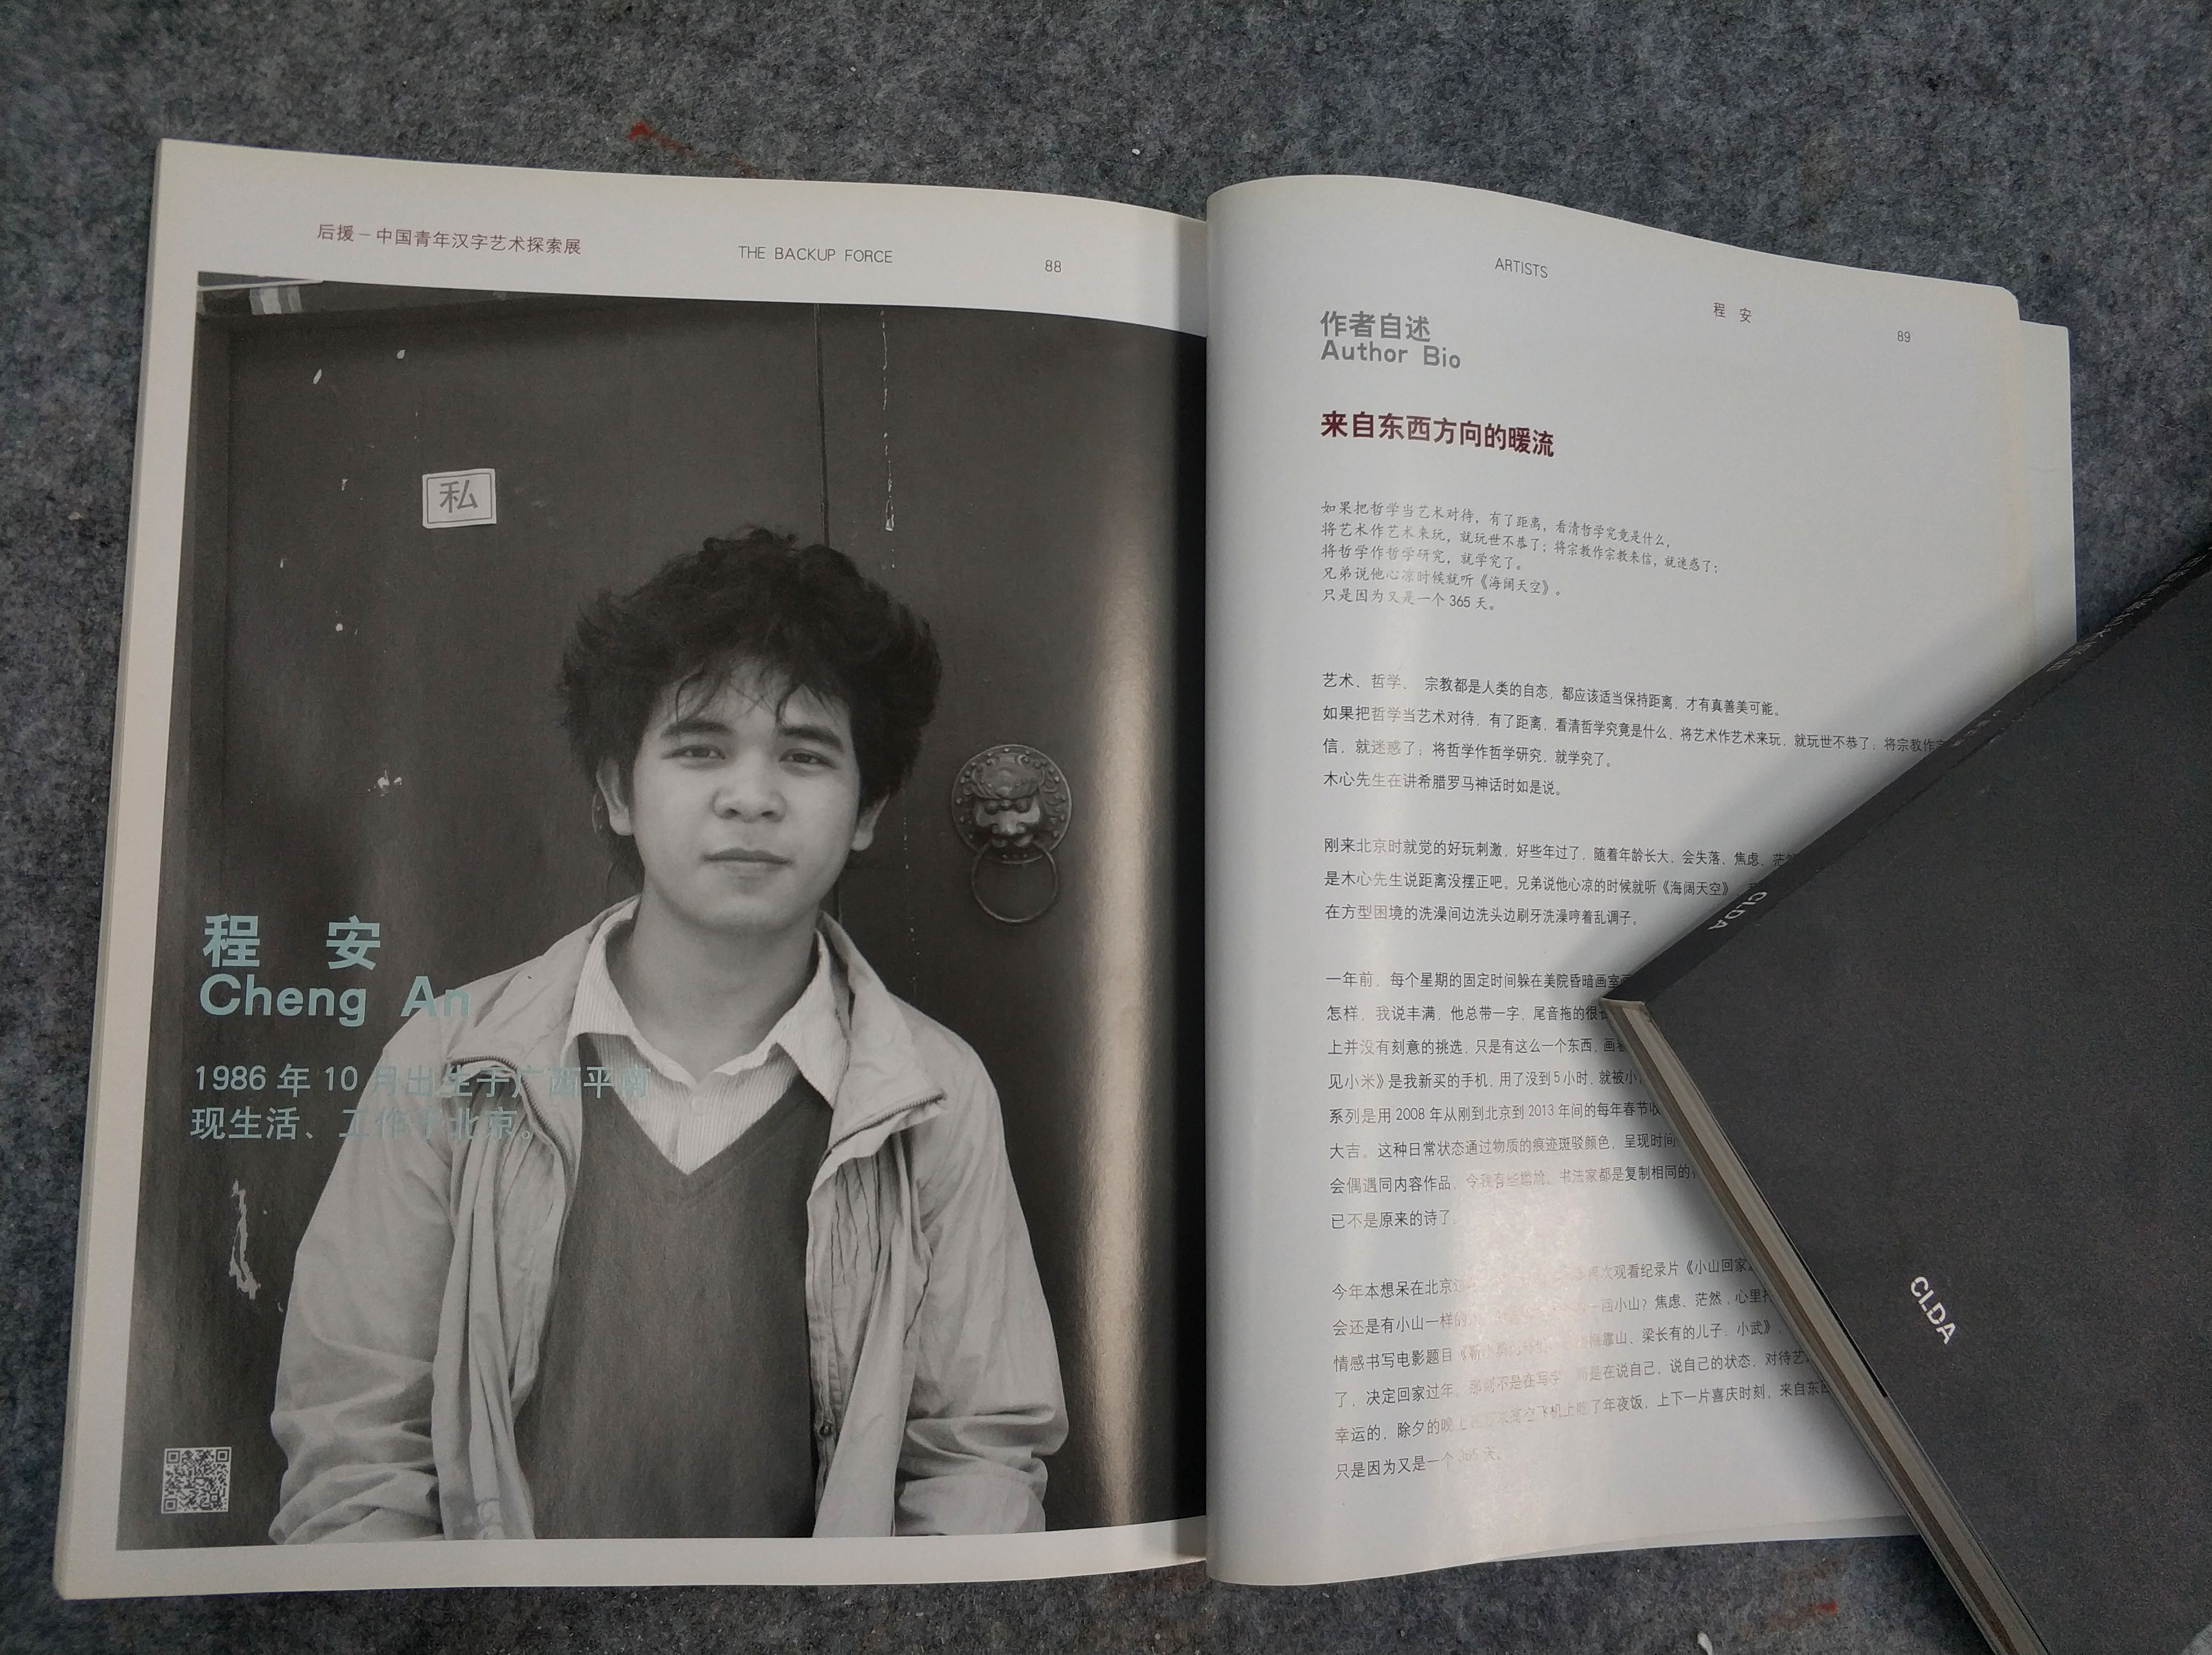 后援－中国青年汉字艺术探索展
THE BACKUP FORCE
88
私
程 安
Cheng An
1986 年 10 月出生于广西平南
现生活、工作于北京。
ARTISTS
程 安
89
作者自述
Author Bio
来自东西方向的暖流
如果把哲学当艺术对待，有了距离，看清哲学究竟是什么，
将艺术作艺术来玩，就玩世不恭了；将宗教作宗教来信，就迷惑了；
将哲学作哲学研究，就学究了。
兄弟说他心凉时候就听《海阔天空》。
只是因为又是一个 365 天。
艺术、哲学、 宗教都是人类的自恋，都应该适当保持距离，才有真善美可能。
如果把哲学当艺术对待，有了距离，看清哲学究竟是什么，将艺术作艺术来玩，就玩世不恭了；将宗教作
信，就迷惑了；将哲学作哲学研究，就学究了。
木心先生在讲希腊罗马神话时如是说。
刚来北京时就觉的好玩刺激，好些年过了，随着年龄长大，会失落、焦虑、茫
是木心先生说距离没摆正吧。兄弟说他心凉的时候就听《海阔天空》
在方型困境的洗澡间边洗头边刷牙洗澡哼着乱调子。
一年前，每个星期的固定时间躲在美院昏暗画室
怎样，我说丰满，他总带一字，尾音拖的很
上并没有刻意的挑选，只是有这么一个东西，画
见小米》是我新买的手机，用了没到 5 小时，就被小
系列是用 2008 年从刚到北京到 2013 年间的每年春节收
大吉。这种日常状态通过物质的痕迹斑驳颜色，呈现时间
会偶遇同内容作品，令我有些尴尬。书法家都是复制相同的
已不是原来的诗了。
今年本想呆在北京 次观看纪录片《小山回家
会还是有小山一样的 小山？焦虑、茫然，心里
情感书写电影题目《靳小勇 靠山、梁长有的儿子：小武》
了，决定回家过年。那刻不是在写字 而是在说自己，说自己的状态，对待艺
幸运的，除夕的晚上 飞机上吃了年夜饭，上下一片喜庆时刻，来自东
只是因为又是一个 365 天。
CLDA
CLDA